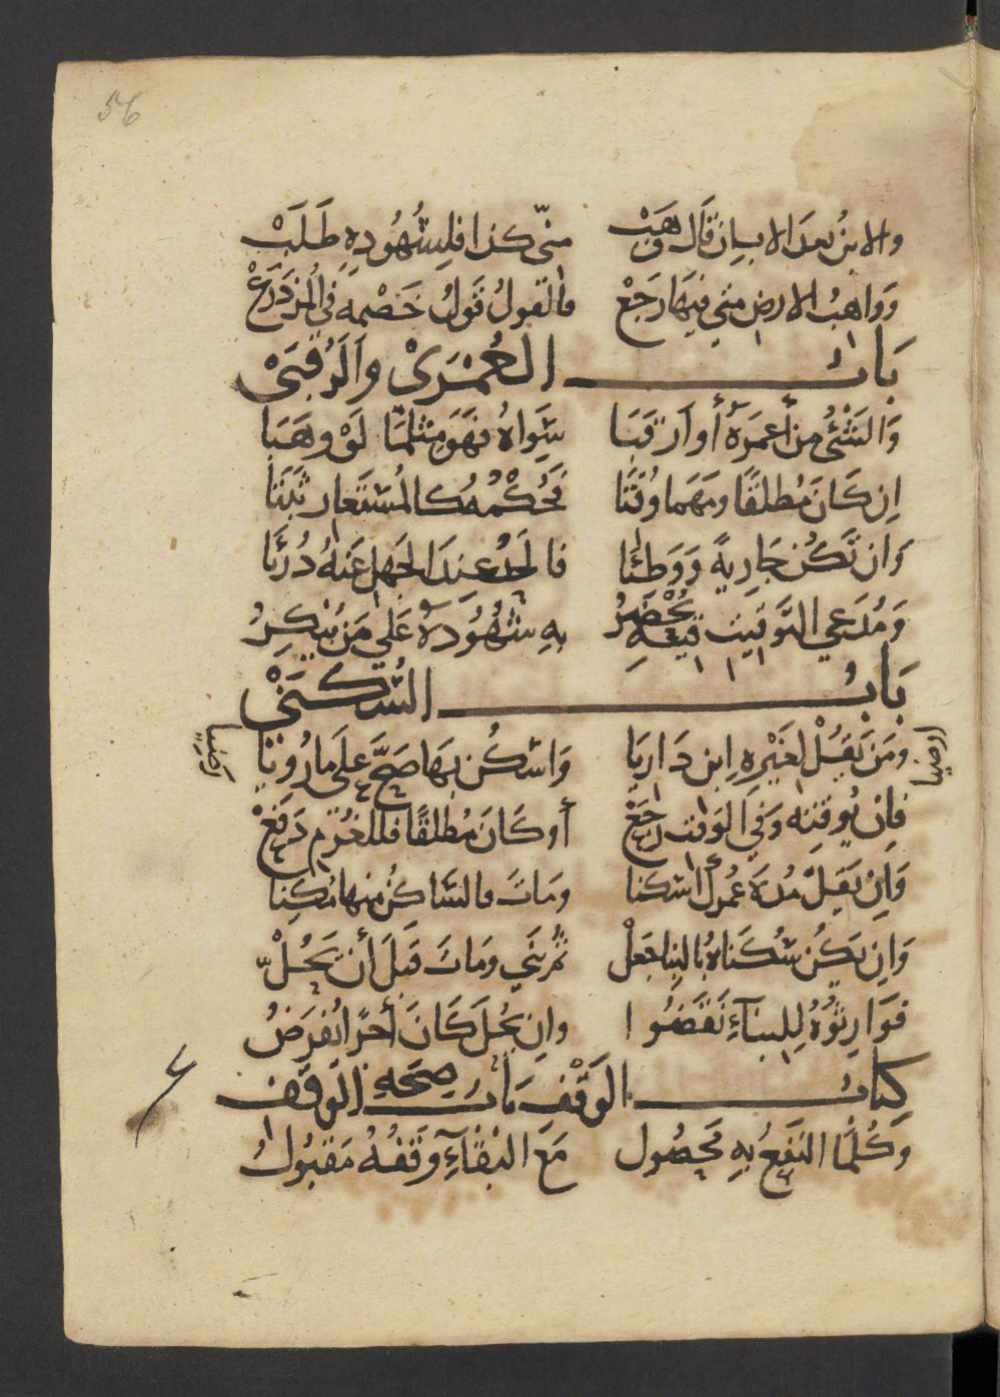 56
والابن بعد الابسان قال وهب منّي كذا فليشهوده طلب
وواهب الارض متى فيها رجع فالقول قول خصمه في المزدرع
باب العُمْرَىْ والرُقبَىْ
والشئُ من أعمره أو ارقبا سواهُ فهو مثلما لو وهبا
ان كان مُطلقًا ومهما وُقّتا فحُكْمُه كالمُستعار ثبتا
وان تكُن جاريةً ووطئا فالحدُ عند الجهل عنهُ دُرئا
ومُدعي التوقيت فيه يُحْضِرُ به شهُوده على من يُنكِرُ
باب السُكنَىْ
ومن يقُلْ لغيره ابن داريا واسكُن بها صحَّ على ما رُويا
ارضيا
رضيا
فان يُوقته وفي الوقت رجعْ أو كان مُطلقًا فللغُرم دفعْ
وانْ يقل مُدة عُمرك اسكنا ومات فالساكنُ منها مُكِنا
وان يكُن سُكناهُ بالبنا جعلْ ثم بني ومات قبل أن يحُلّ
فوارثُوهُ للبناءِ نقضُوا وان يحُل كان أجرًا يُفرضُ
كتاب الوَقْف باب صحه الوقف
وكُلُّما النفعُ به محصُول مع البقآءِ وقفُهُ مقبُولُ